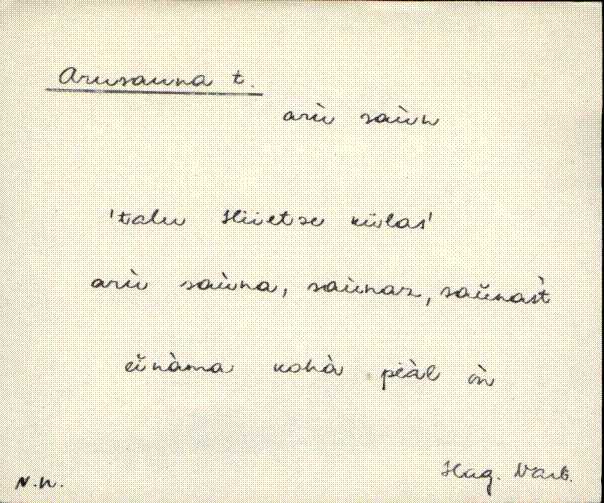 Arusauna t.
arù saùn
'talu Hüetse külas'
arù saùna, saùnaz, saŭnas̀t
eĭnàma kohà peàl òn
N.N. Hag. Varb.